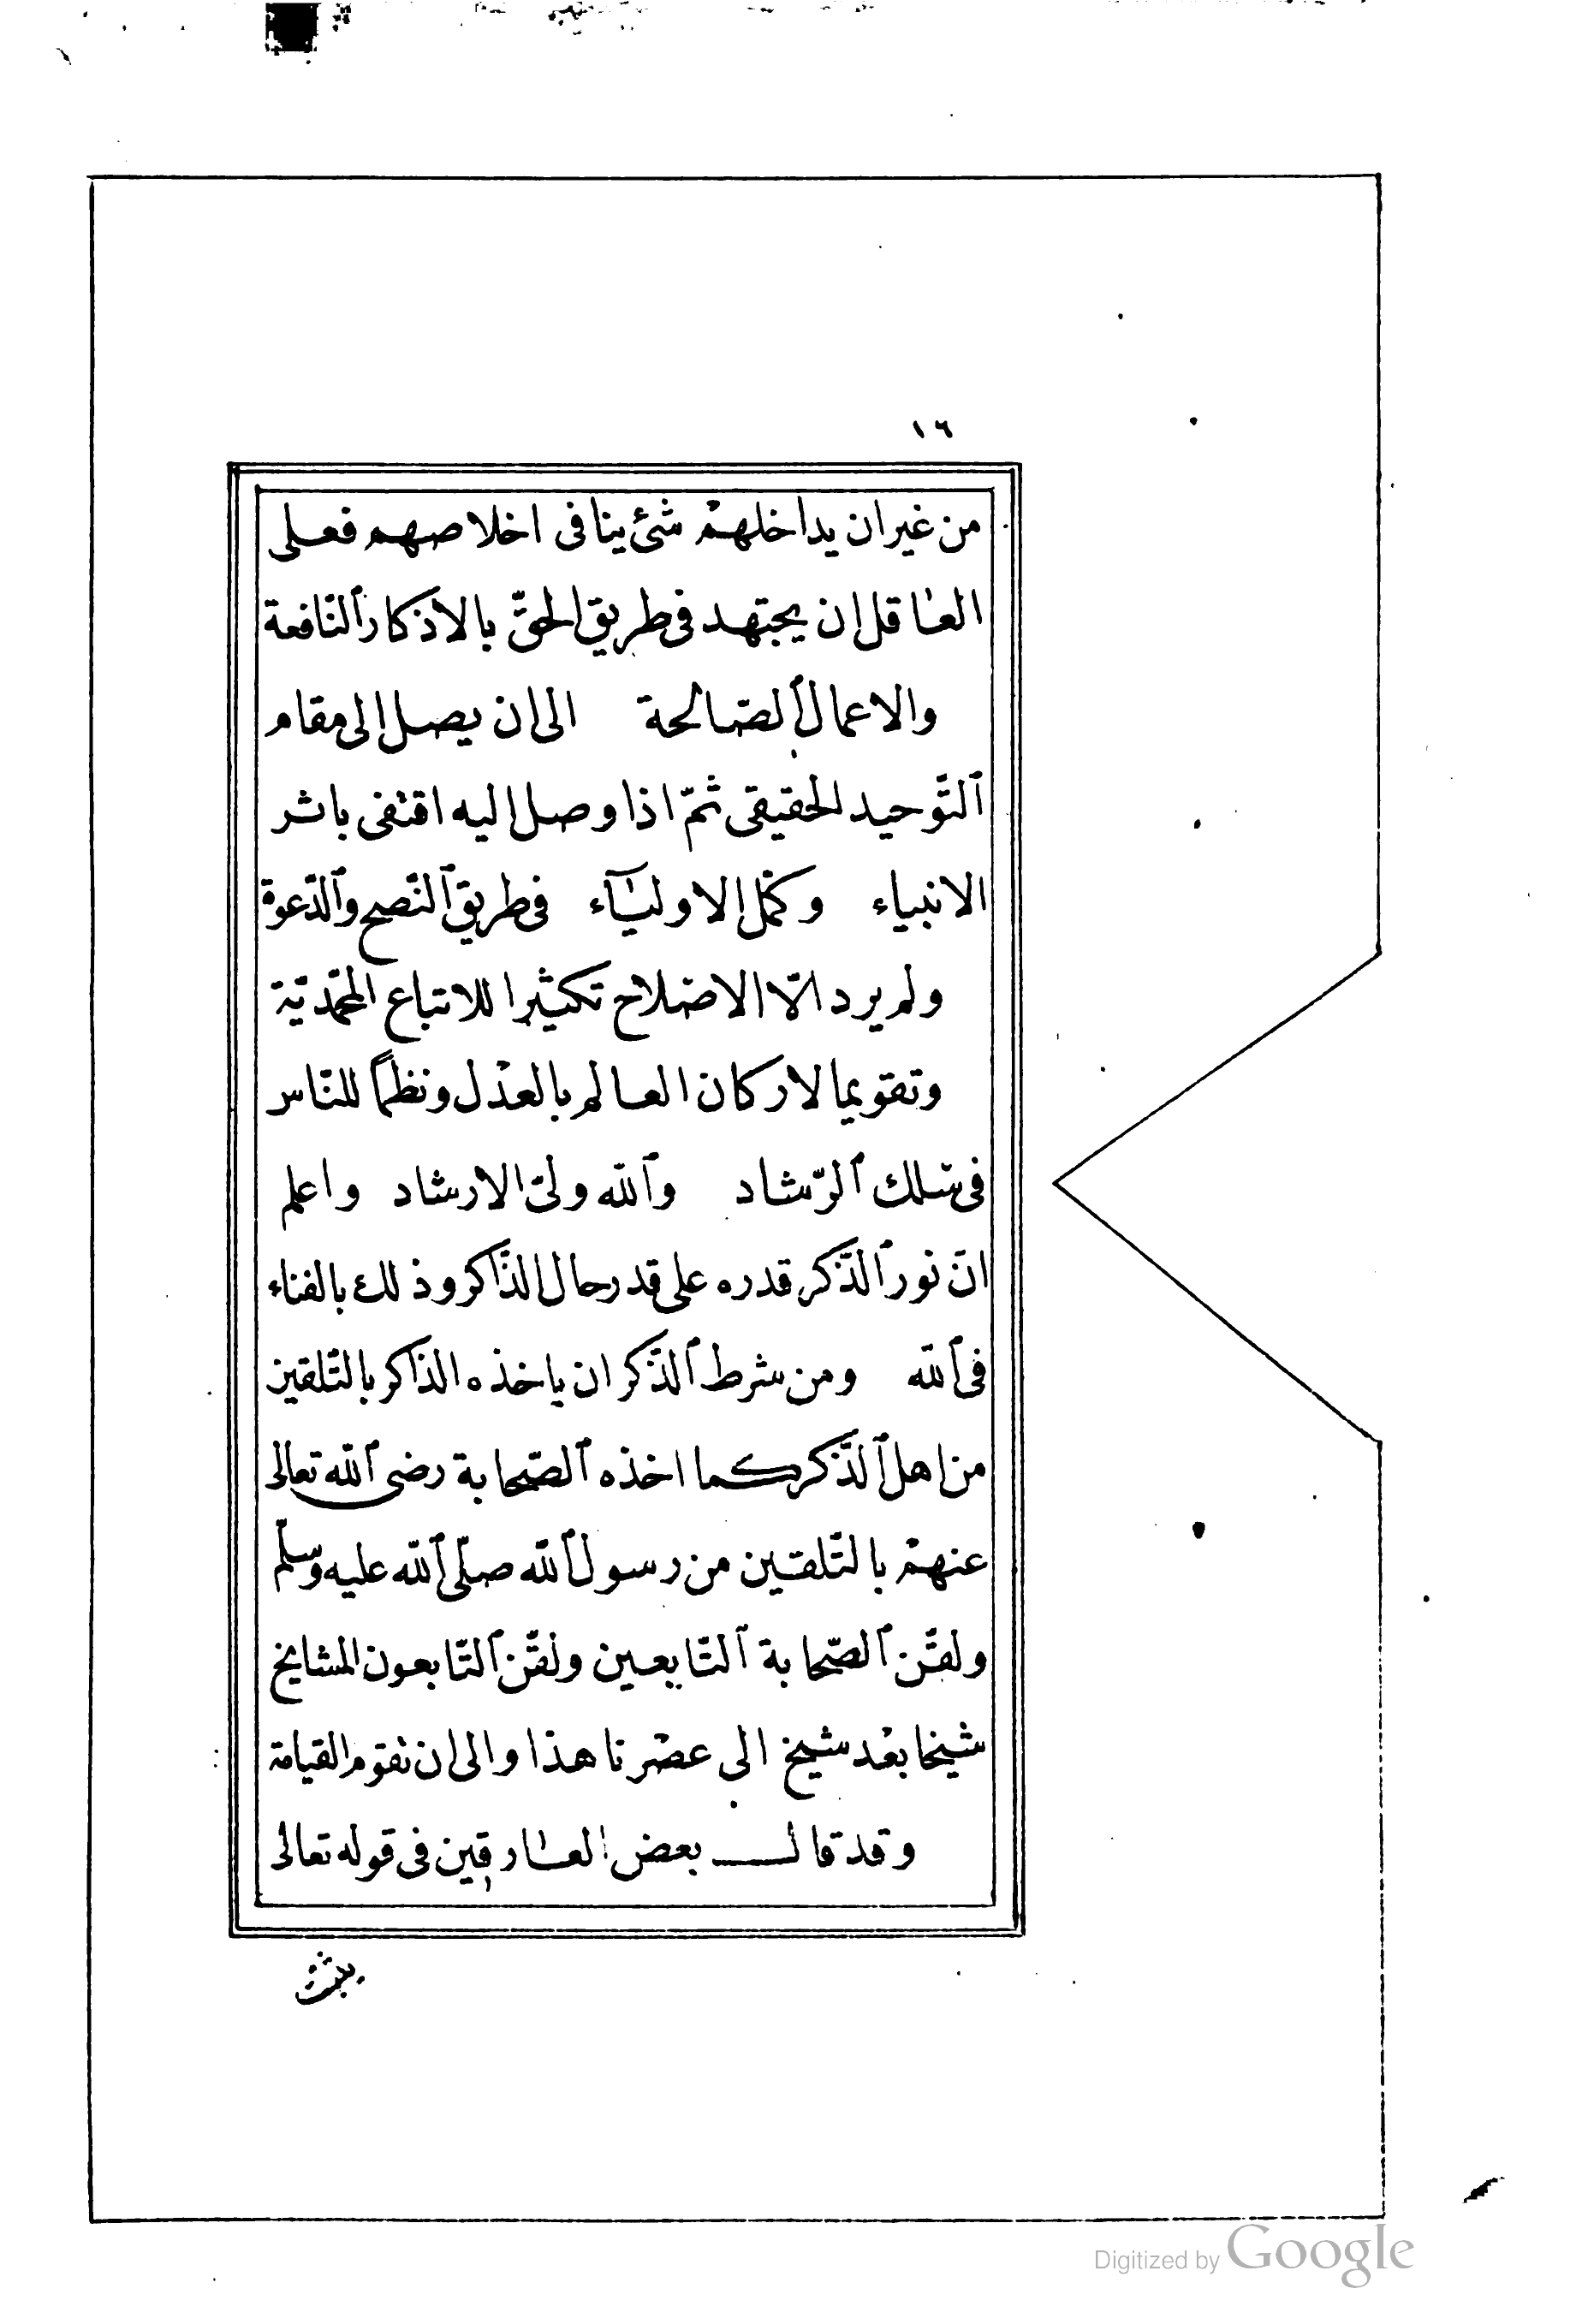 ١٦
من غيران يداخلهمْ شئ ينافى اخلاصهم فعلى
العاقل ان يجتهد فى طريق الحقّ بالاذكار ٱلنّافعة
والاعمال ٱلصّالحة الى ان يصل الى مقام
ٱلتّوحيد الحقيقى ثمّ اذا وصل اليه اقتفى باثر
الانبياء وكمّل الاوليآء فى طريق ٱلنّصح وٱلدّعوة
ولم يرد الّا الاصلاح تكثيرا للاتباع المحمّديّة
وتقويما لاركان العالم بالعدْل ونظماً للنّاس
فى سلك ٱلرّشاد وٱللّه ولىّ الارشاد واعلم
انّ نور ٱلذّكر قدره على قدر حال الذّاكر وذلك بالفناء
فى ٱللّه ومن شرط ٱلذّكر ان ياخذه الذاكر بالتّلقين
من اهل ٱلذّكر كما اخذه ٱلصّحابة رضى ٱللّه تعالى
عنهمْ بالتّلقين من رسول ٱللّه صلّى ٱللّه عليه وسلّم
ولقّن ٱلصّحابة ٱلتّابعين ولقّن ٱلتّابعون المشايخ
شيخا بعْد شيخ الى عصْرنا هذا والى ان تقوم القيامة
وقد قال بعض العارفين فى قوله تعالى
Digitized by Google